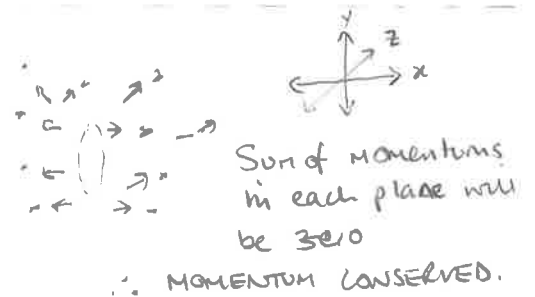 y
z
x
Sum of momentums
in each plane will
be zero
∴ MOMENTUM CONSERVED.